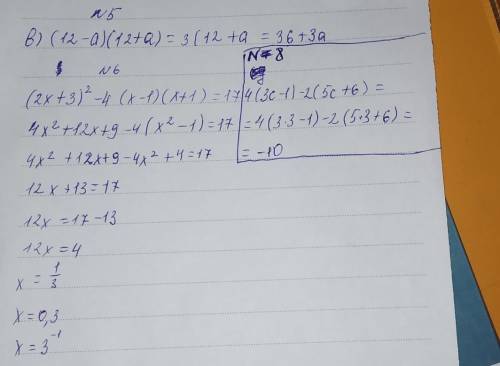 N5
в) (12-a)(12+a) = 3(12+a = 36+3a
N6
(2x+3)² -4 (x-1)(x+1) = 17
4x²+12x+9-4(x²-1)=17
4x²+12x+9-4x²+4=17
12x+13=17
12x=17-13
12x=4
x=1/3
x=0,3
x=3⁻¹
N-8
4(3c-1)-2(5c+6)=
=4(3·3-1)-2(5·3+6)=
=-10